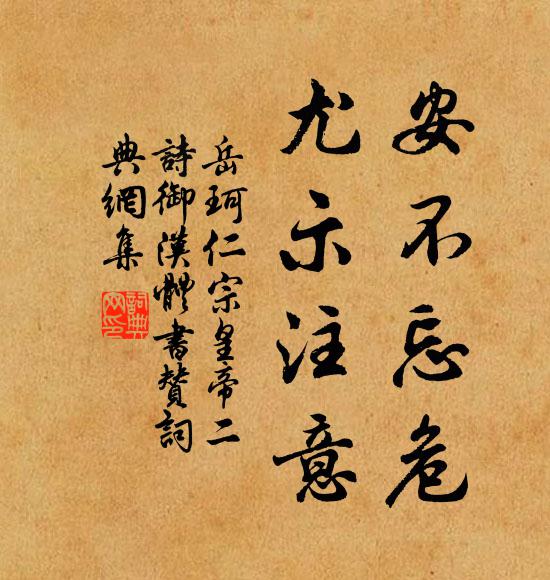 安不忘危
尤示注意
岳珂仁宗皇帝二
詩御漢體書贊詞
典網集
詞典網印